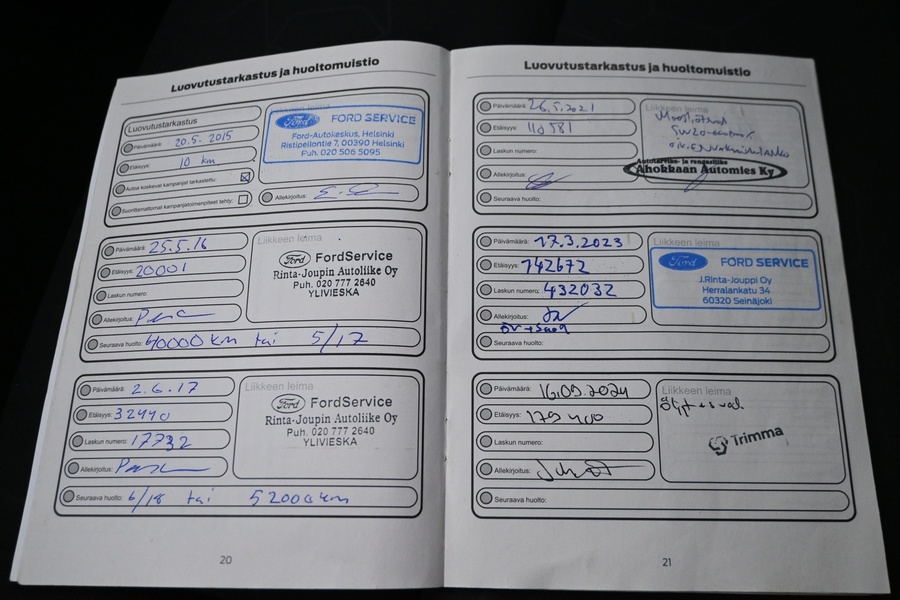 Luovutustarkastus ja huoltomuistio
Luovutustarkastus
Päivämäärä: 20.5. 2015
Etäisyys: 10 km
Autoa koskevat kampanjat tarkastettu:
Suorittamattomat kampanjatoimenpiteet tehty:
Liikkeen leima
Ford FORD SERVICE
Ford-Autokeskus, Helsinki
Ristipellontie 7, 00390 Helsinki
Puh. 020 506 5095
Allekirjoitus:
Päivämäärä: 25.5.16
Etäisyys: 20001
Laskun numero:
Allekirjoitus:
Seuraava huolto: 40000 km tai 5/17
Liikkeen leima
Ford FordService
Rinta-Joupin Autoliike Oy
Puh. 020 777 2640
YLIVIESKA
Päivämäärä: 2.6.17
Etäisyys: 32440
Laskun numero: 17732
Allekirjoitus:
Seuraava huolto: 6/18 tai 52000 km
Liikkeen leima
Ford FordService
Rinta-Joupin Autoliike Oy
Puh. 020 777 2640
YLIVIESKA
20
Luovutustarkastus ja huoltomuistio
Päivämäärä: 26.5.2021
Etäisyys: 110581
Laskun numero:
Allekirjoitus:
Seuraava huolto:
Liikkeen leima
Autotarvike- ja rengasliike
Ahokkaan Automies Ky
Päivämäärä: 17.3.2023
Etäisyys: 142672
Laskun numero: 432032
Allekirjoitus:
Seuraava huolto:
Liikkeen leima
Ford FORD SERVICE
J.Rinta-Jouppi Oy
Herralankatu 34
60320 Seinäjoki
Päivämäärä: 16.09.2024
Etäisyys: 179400
Laskun numero:
Allekirjoitus:
Seuraava huolto:
Liikkeen leima
Öljyt + suod.
Trimma
21